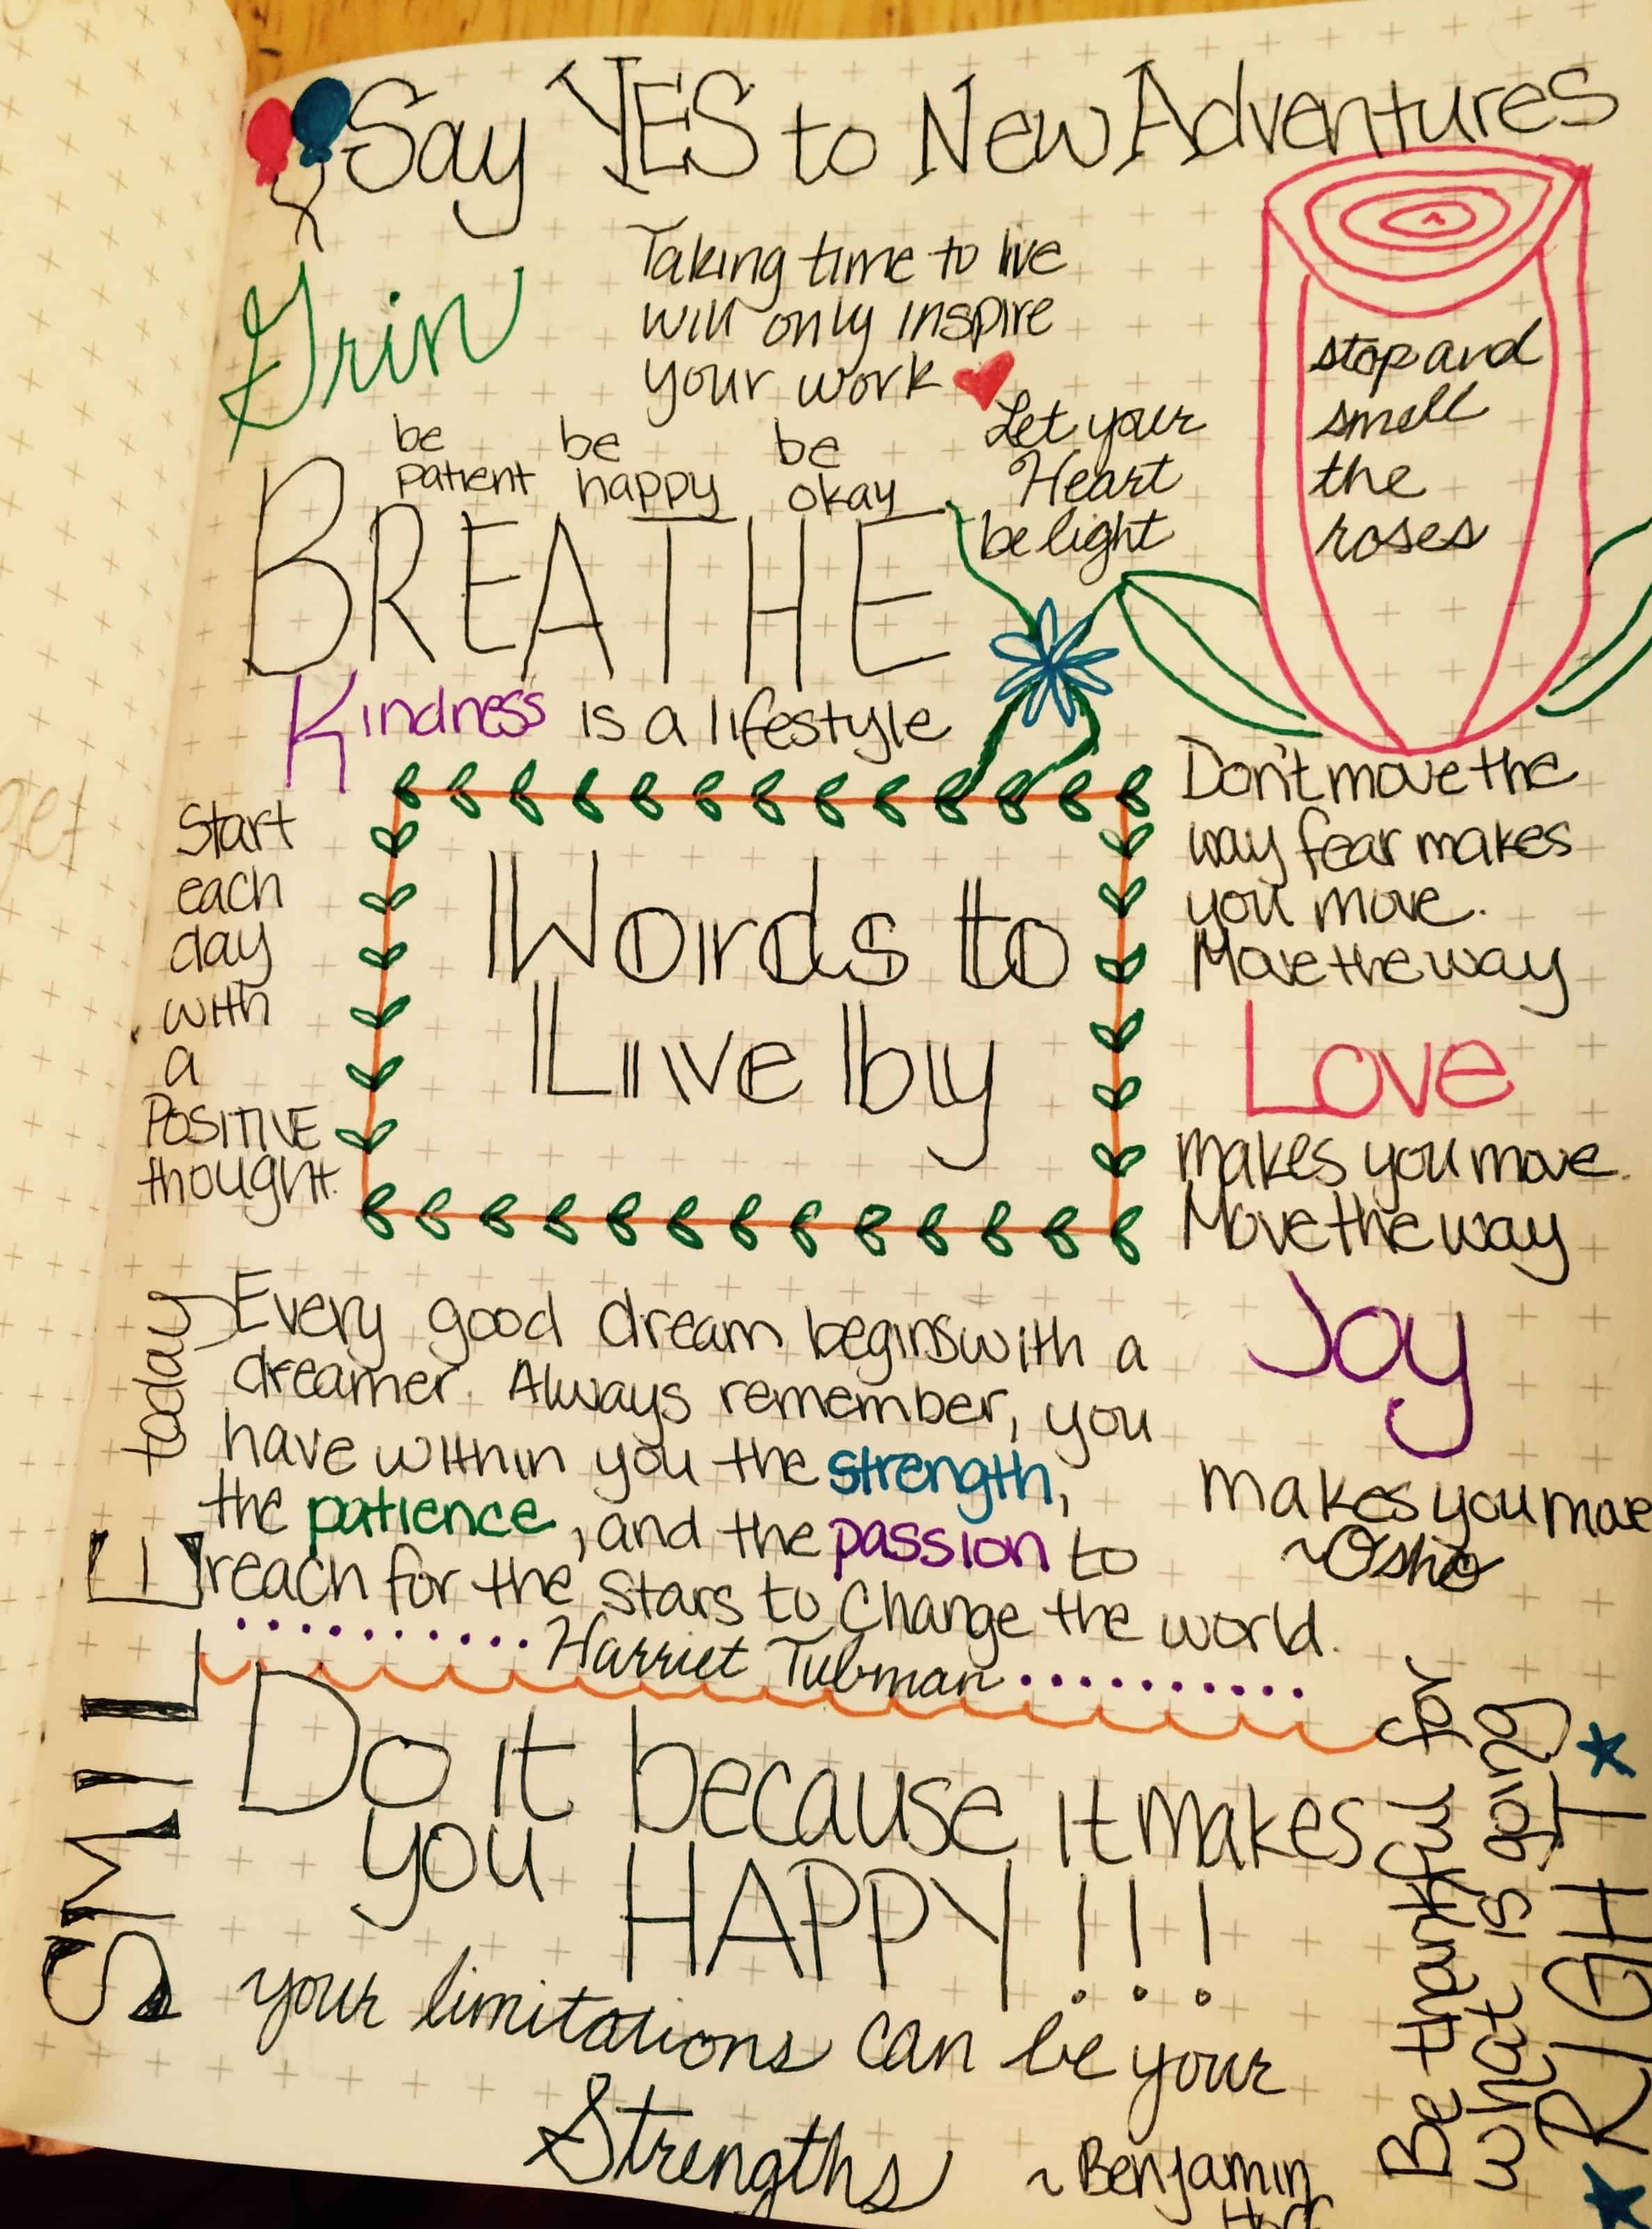 Say YES to New Adventures
Grin
Taking time to live
will only inspire
your work
stop and
smell
the
roses
be
patient
be
happy
be
okay
Let your
Heart
be light
BREATHE
Kindness is a lifestyle
Start
each
day
with
a
POSITIVE
thought.
Words to
Live by
Don't move the
way fear makes
you move.
Move the way
Love
makes you move.
Move the way
Joy
makes you move
~Osho
SMILE today
Every good dream begins with a
dreamer. Always remember, you
have within you the strength,
the patience, and the passion to
reach for the stars to change the world.
Harriet Tubman
Do it because it makes
you HAPPY!!!
your limitations can be your
Strengths
~Benjamin
Be thankful for
what is going
RIGHT